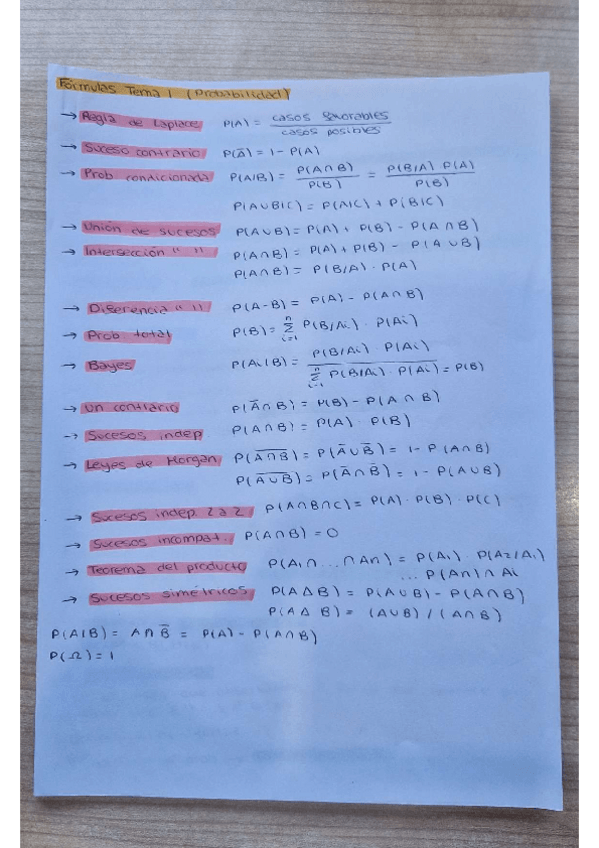 Fórmulas Tema 1 (Probabilidad)
→ Regla de Laplace P(A) = casos favorables / casos posibles
→ Suceso contrario P(Ā) = 1 - P(A)
→ Prob. condicionada P(A/B) = P(A∩B) / P(B) = P(B/A) P(A) / P(B)
P(A∪B|C) = P(A|C) + P(B|C)
→ Unión de sucesos P(A∪B) = P(A) + P(B) - P(A∩B)
→ Intersección " " P(A∩B) = P(A) + P(B) - P(A∪B)
P(A∩B) = P(B/A) · P(A)
→ Diferencia " " P(A-B) = P(A) - P(A∩B)
→ Prob total P(B) = Σ_{i=1}^{n} P(B/Ai) · P(Ai)
→ Bayes P(Ai|B) = P(B/Ai) · P(Ai) / Σ_{i=1}^{n} P(B/Ai) · P(Ai) = P(B)
→ Un contrario P(Ā∩B) = P(B) - P(A∩B)
→ Sucesos indep. P(A∩B) = P(A) · P(B)
→ Leyes de Morgan P(A̅∩̅B̅) = P(Ā∪B̄) = 1 - P(A∩B)
P(A̅∪̅B̅) = P(Ā∩B̄) = 1 - P(A∪B)
→ Sucesos indep 2 a 2 P(A∩B∩C) = P(A) · P(B) · P(C)
→ Sucesos incompat. P(A∩B) = 0
→ Teorema del producto P(A₁∩...∩An) = P(A₁) · P(A2/A₁)
... P(An) ∩ Ai
→ Sucesos simétricos P(A△B) = P(A∪B) - P(A∩B)
P(A△B) = (A∪B) / (A∩B)
P(A|B) = A∩B̄ = P(A) - P(A∩B)
P(Ω) = 1